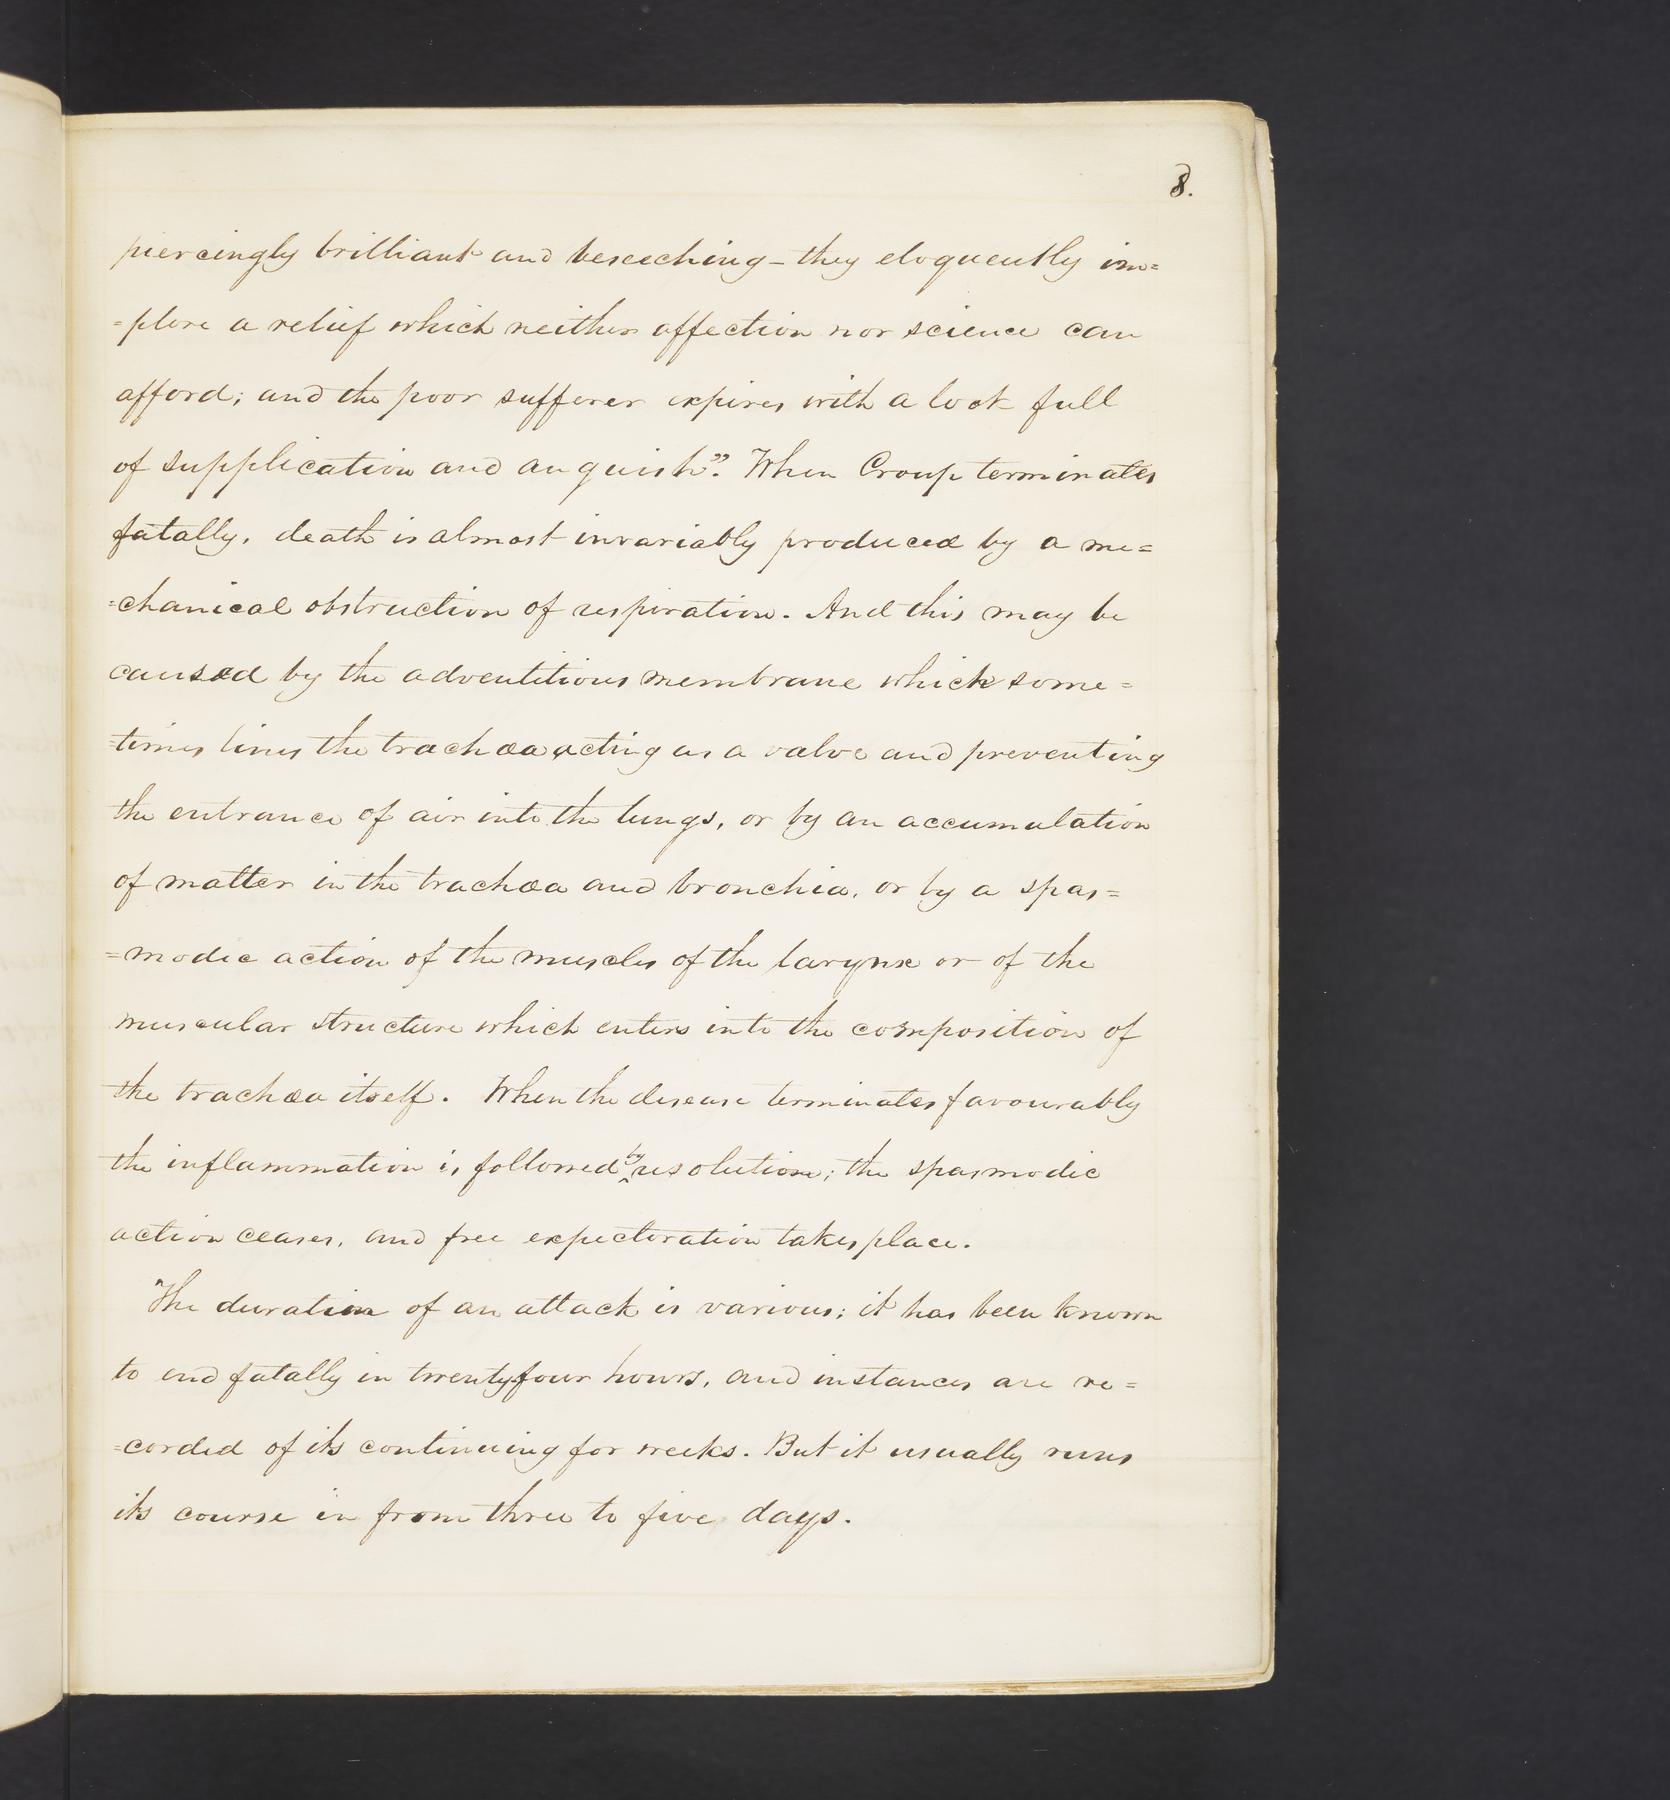 8.
piercingly brilliant and beseeching - they eloquently im=
=plore a relief which neither affection nor science can
afford; and the poor sufferer expires with a look full
of supplication and anguish". When Croup terminates
fatally, death is almost invariably produced by a me=
=chanical obstruction of respiration. And this may be
caused by the adventitious membrane which some=
=times lines the trachæa acting as a valve and preventing
the entrance of air into the lungs, or by an accumulation
of matter in the trachæa and bronchia, or by a spas=
=modic action of the muscles of the larynx or of the
muscular structure which enters into the composition of
the trachæa itself. When the disease terminates favourably
the inflammation is followed by resolution; the spasmodic
action ceases, and free expectoration takes place.
The duration of an attack is various; it has been known
to end fatally in twentyfour hours, and instances are re=
=corded of its continuing for weeks. But it usually runs
its course in from three to five days.